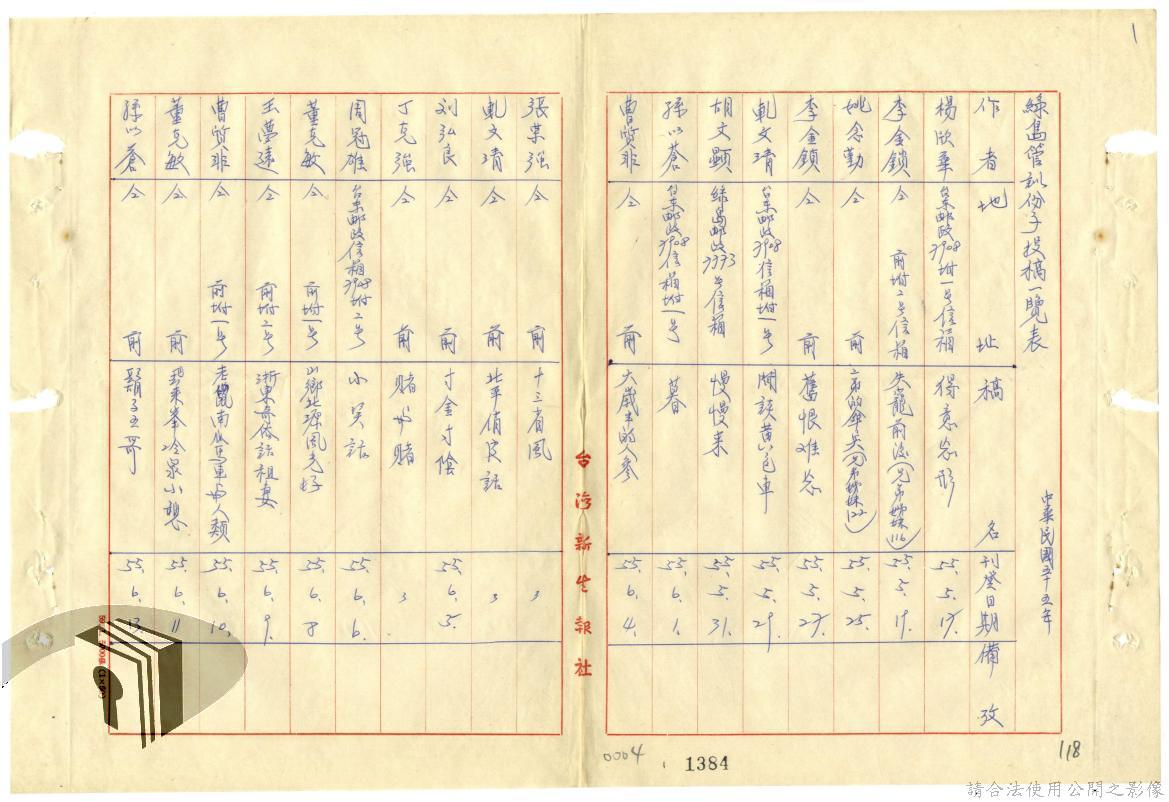 1
綠島管訓份子投稿一覽表
中華民國五十五年
作者 地址 稿名 刊登日期 備攷
楊欣華 台東郵政7908附一号信箱 得意忘形 55.5.17.
李金鎖 仝 前附二号信箱 失寵前後(兄弟姊妹116) 55.5.19.
姚念勤 仝 前 二弟的傘兵(兄弟姊妹122) 55.5.25.
李金鎖 仝 前 舊恨难忘 55.5.27.
軋文清 台東郵政7908信箱附一号 閒談黄包車 55.5.29.
胡文顯 綠島郵政7993号信箱 慢慢来 55.5.31.
孫以蒼 台東郵政7908信箱附一号 暮 55.6.1.
曹質非 仝 前 大歲半的人參 55.6.4.
張棠强 仝 前 十三省風 3
軋文清 仝 前 北平俏皮話 3
刘弘良 仝 前 寸金寸陰 55.6.5.
丁克强 仝 前 賭與賭 3
周冠雄 台東郵政信箱7908附二号 小笑話 55.6.6.
董克敏 仝 前附一号 山鄉北源風光好 55.6.8
王夢遠 仝 前附二号 浙東奇俗話租妻 55.6.9.
曹質非 仝 前附一号 老鼠南瓜馬車與人類 55.6.10.
董克敏 仝 前 飛来峯冷泉小憩 55.6.11
孫以蒼 仝 前 鬍子五哥 55.6.13.
台灣新生報社
0004
1384
118
請合法使用公開之影像